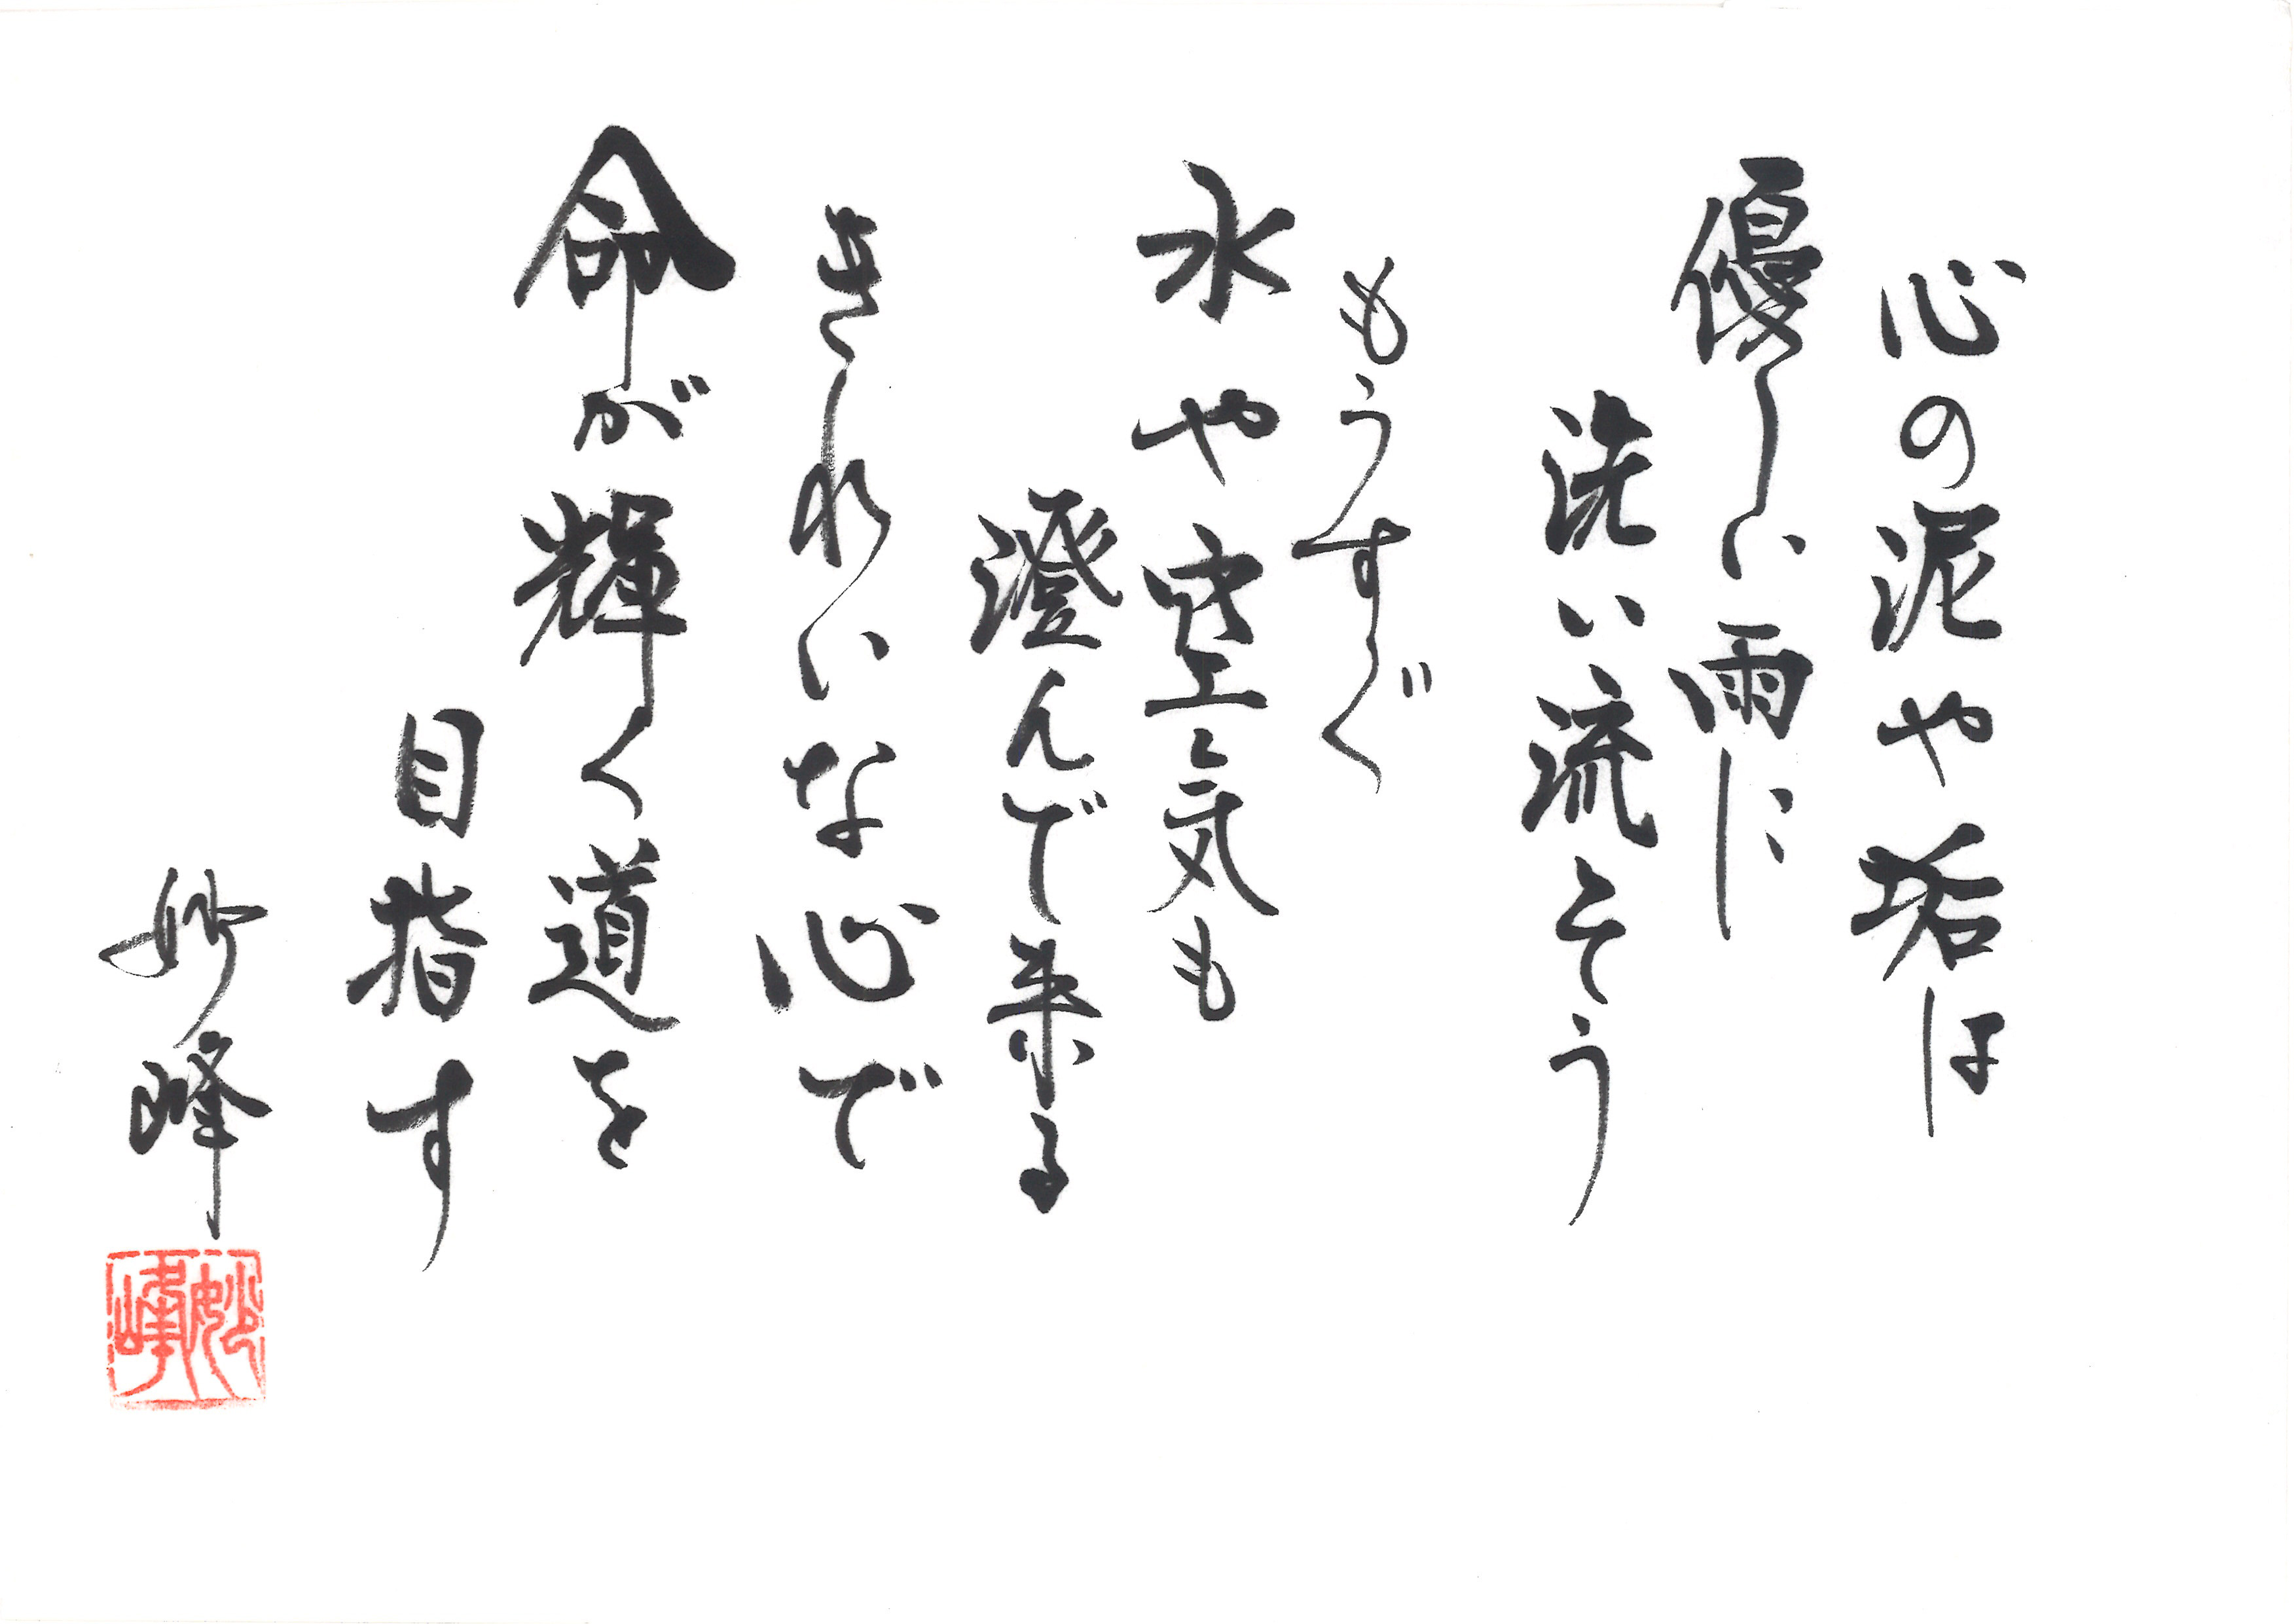 心の泥や垢は
優しい雨に
洗い流そう
もうすぐ
水や空気も
澄んで来る
きれいな心で
命が輝く道を
目指す
妙峰
妙峰